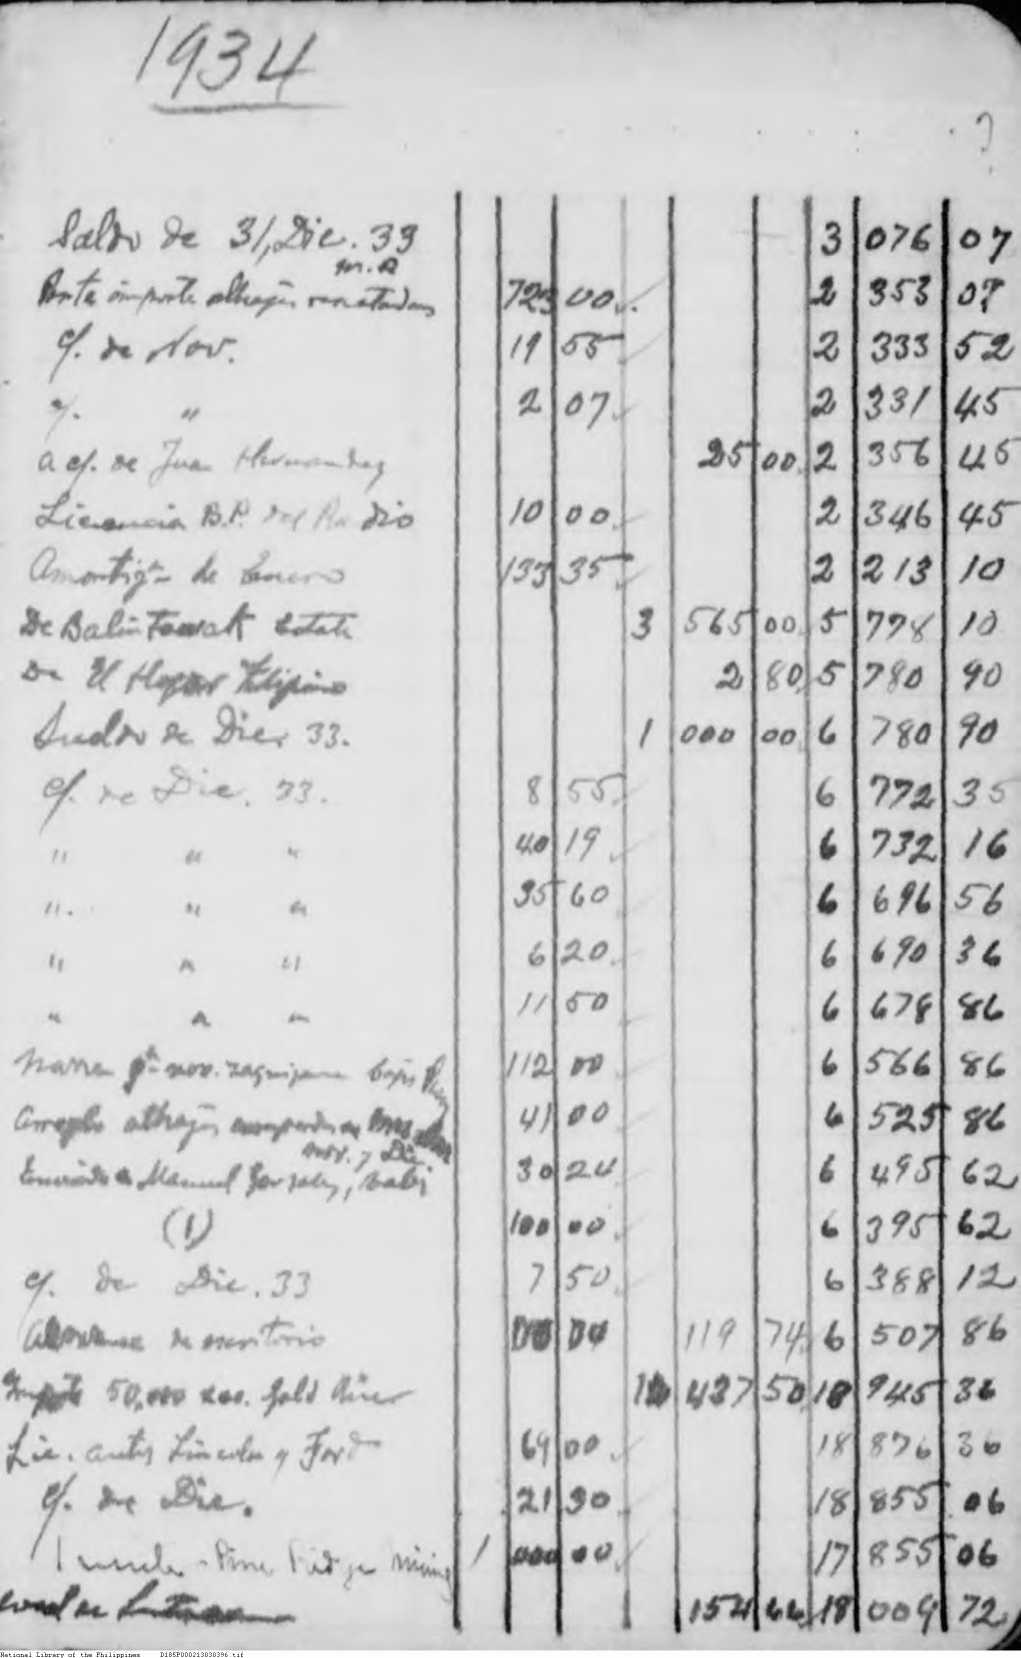 1934
?
Saldo de 31, Dic. 33 3 076 07
importe alhajas rematadas 723 00 2 353 07
cf. de Nov. 19 55 2 333 52
cf. " 2 07 2 331 45
a cf. de Juan Hernandez 25 00 2 356 45
Licencia B.P. del Radio 10 00 2 346 45
Amortizn de Enero 133 35 2 213 10
De Balintawak Estate 3 565 00 5 778 10
De El Hogar Filipino 2 80 5 780 90
Sueldo de Dic. 33. 1 000 00 6 780 90
cf. de Dic. 33. 8 55 6 772 35
" " " 40 19 6 732 16
" " " 35 60 6 696 56
" " " 6 20 6 690 36
" " " 11 50 6 678 86
nov. 112 00 6 566 86
Arreglo alhajas 41 00 6 525 86
nov. y Dic.
Enviado a Manuel Gonzalez, 30 24 6 495 62
(1) 100 00 6 395 62
cf. de Dic. 33 7 50 6 388 12
de escritorio 119 74 6 507 86
50,000 acc. Gold River 12 437 50 18 945 36
Lic. autos Lincoln y Ford 69 00 18 876 36
cf. de Dic. 21 30 18 855 06
Pine Ridge Mining 1 000 00 17 855 06
154 66 18 009 72
National Library of the Philippines D185P000213030396.tif